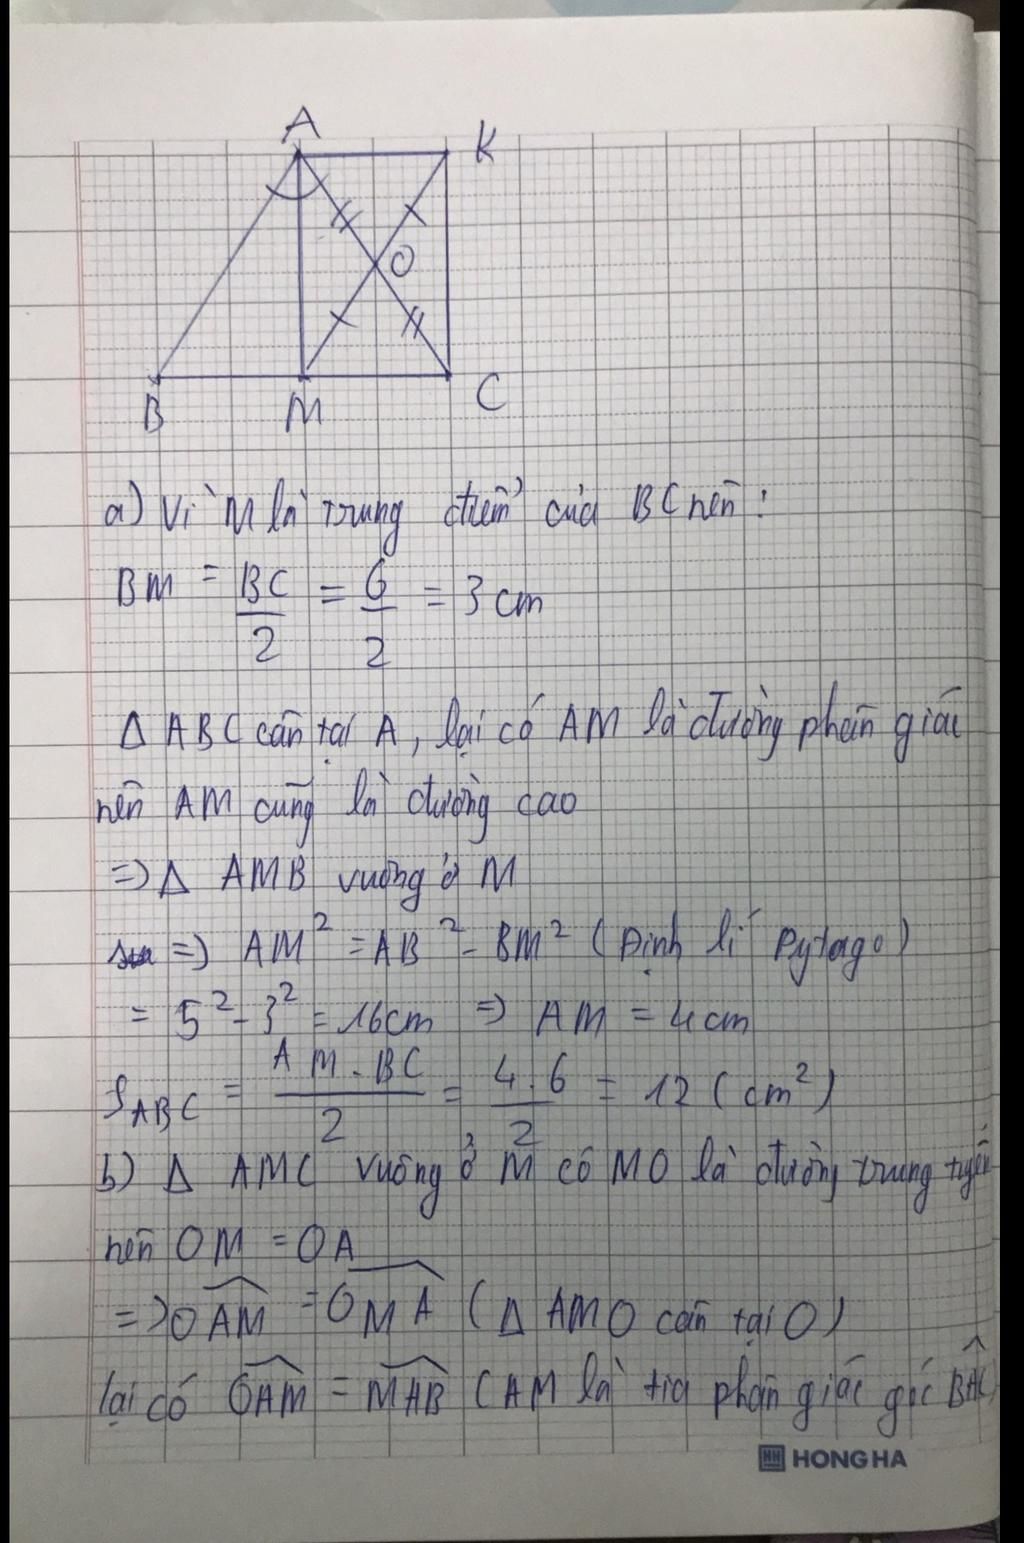 A
K
O
B
M
C
a) Vì M là trung điểm của BC nên :
BM = BC/2 = 6/2 = 3 cm
Δ ABC cân tại A, lại có AM là đường phân giác
nên AM cũng là đường cao
=> Δ AMB vuông ở M
=> AM² = AB² - BM² (Định lí Pytago)
= 5² - 3² = 16cm => AM = 4cm
S_ABC = AM . BC/2 = 4.6/2 = 12 (cm²)
b) Δ AMC vuông ở M có MO là đường trung tuyến
nên OM = OA
=> \widehat{OAM} = \widehat{OMA} (Δ AMO cân tại O)
lại có \widehat{OAM} = \widehat{MAB} (AM là tia phân giác góc \widehat{BAC}
HONG HA